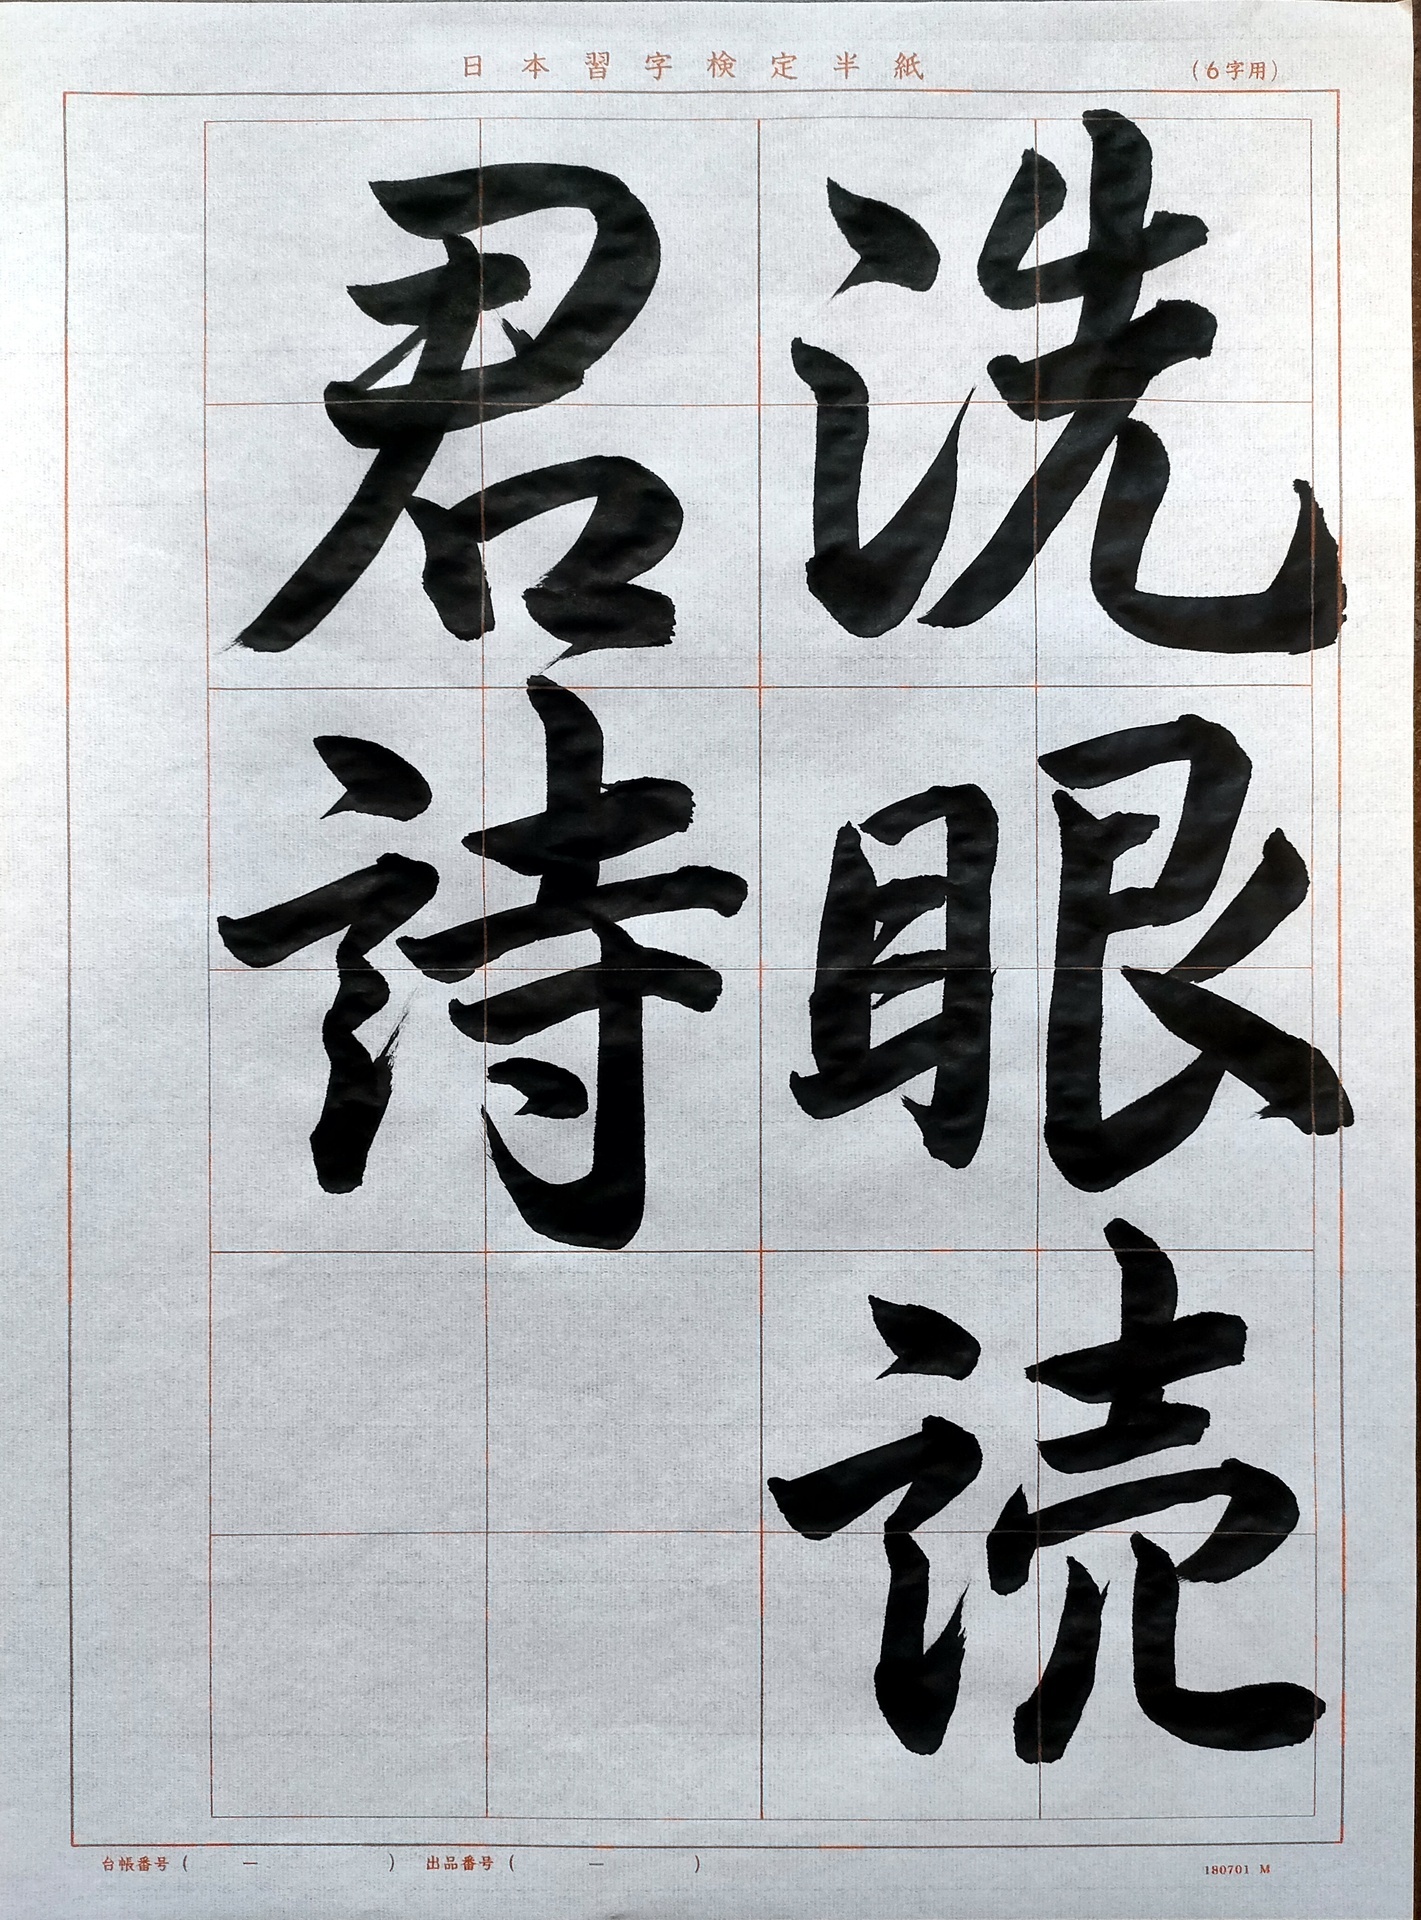 日本習字検定半紙
(6字用)
洗眼読
君詩
台帳番号( ー ) 出品番号( ー )
180701 M